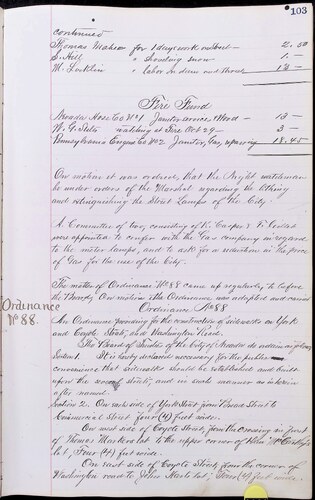 103
continued
Thomas Mahon for 1 day work on Street — 2.50
S. Hill " Shoveling snow — 1.—
M. Laughlin " labor on drain and Street — 13—
Fire Fund
Nevada Hose Co No 1 Janitor services & Wood — 13—
W. G. Potts watching at Fire Oct 29 — 3—
Pennsylvania Engine Co No 2 Janitor, Gas, repairing 18.45
On motion it was ordered, that the Night watchman
be under orders of the Marshal regarding the lighting
and extinguishing the Street Lamps of the City.
A Committee of two, consisting of K. Casper & R.
were appointed to confer with the Gas company in regard
to the meter lamps, and to ask for a reduction in the price
of Gas for the use of the City.
The matter of Ordinance No 88 came up regularly to before
the Board, On motion the Ordinance was adopted and carried
Ordinance No 88.
Ordinance No 88
An Ordinance providing for the construction of sidewalks on York
and Coyote Streets, and Washington Road.
The Board of Trustees of the City of Nevada do ordain as follows:
Section 1. It is hereby declared necessary for the public
convenience that sidewalks should be established and built
upon the several streets, and in such manner as herein
after named.
Section 2. On each side of York Street from Broad Street to
Commercial Street four (4) feet wide.
On west side of Coyote Street, from the crossing in front
of Thomas lot to the upper corner of John
lot, Four (4) feet wide.
On east side of Coyote Street, from the corner of
Washington road to John lot, Four (4) feet wide.